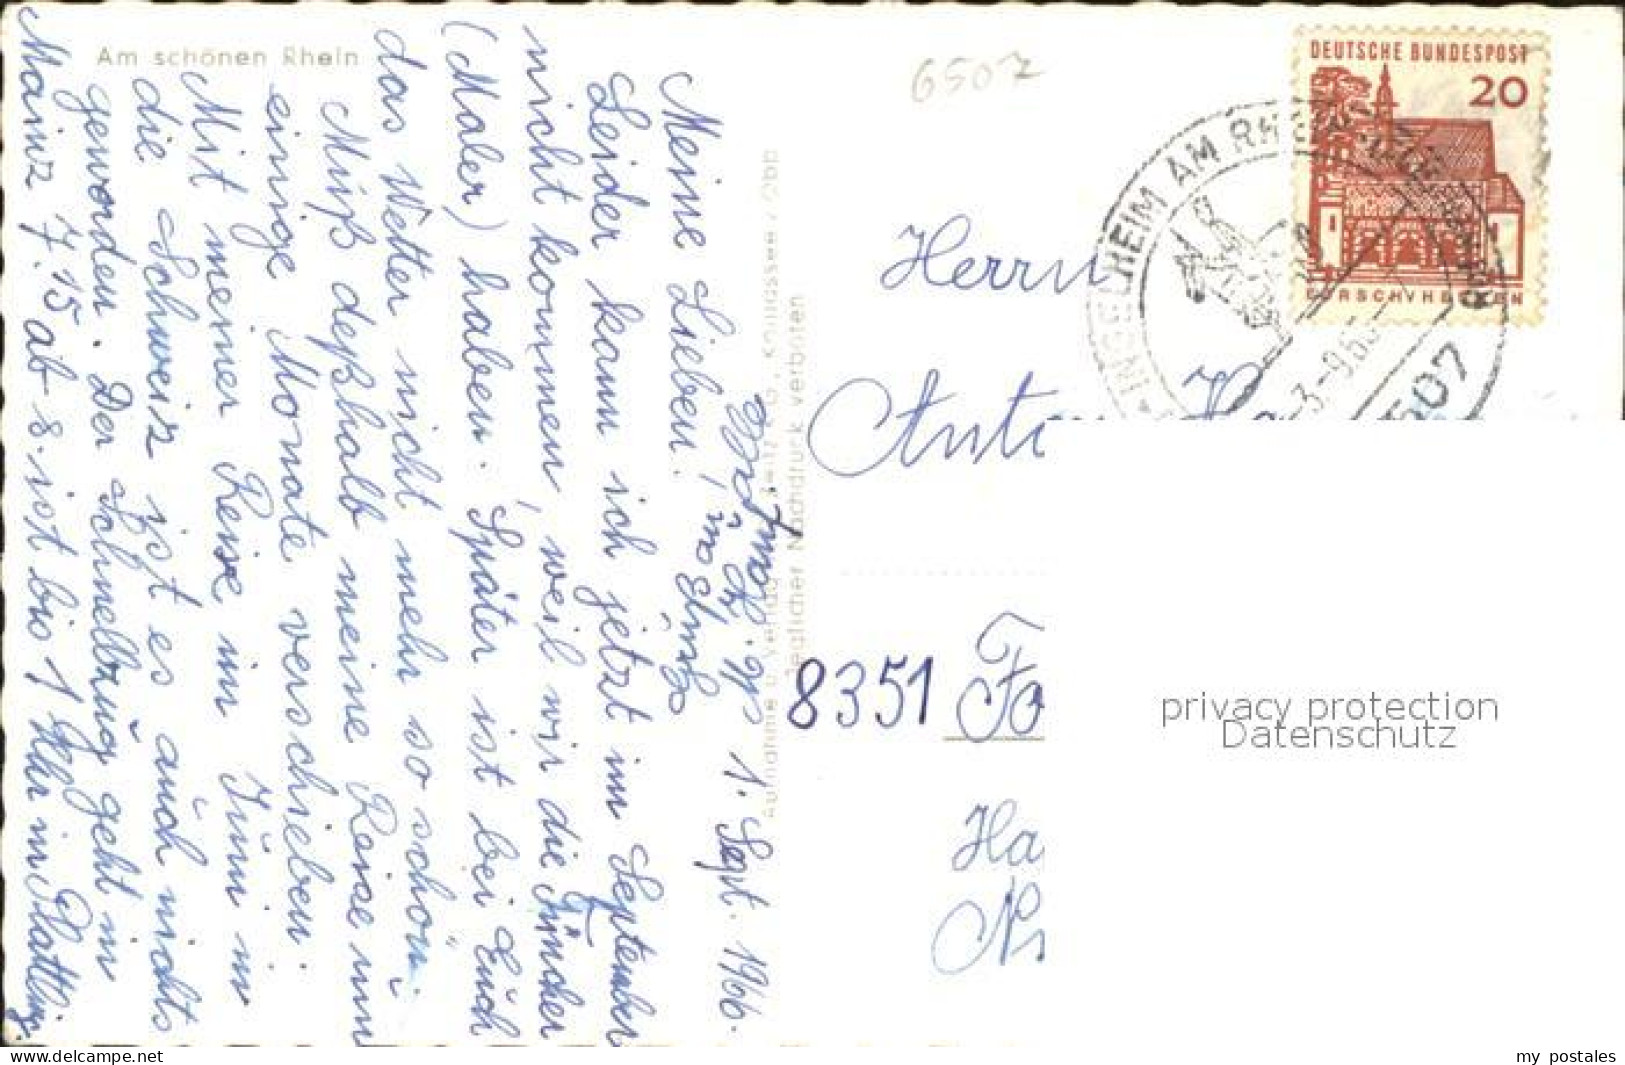 Am schönen Rhein
6507
1. Sept. 1966.
Meine Lieben!
Leider kann ich jetzt im September
nicht kommen, weil wir die Tüncher
(Maler) haben. Später ist bei Euch
das Wetter nicht mehr so schön.
Muß deßhalb meine Reise um
einige Monate verschieben.
Mit meiner Reise im Juni in
die Schweiz ist es auch nichts
geworden. Der Schnellzug geht in
Mainz 7.15 ab u. ist bis 1 Uhr in Plattling.
Jeglicher Nachdruck verboten
DEUTSCHE BUNDESPOST
20
LORSCH/HESSEN
INGELHEIM AM RHEIN
-3.-9.66
6507
Herrn
Anton
8351
Ha
privacy protection
Datenschutz
my postales
Tous droits réservés - copie interdite - www.delcampe.net